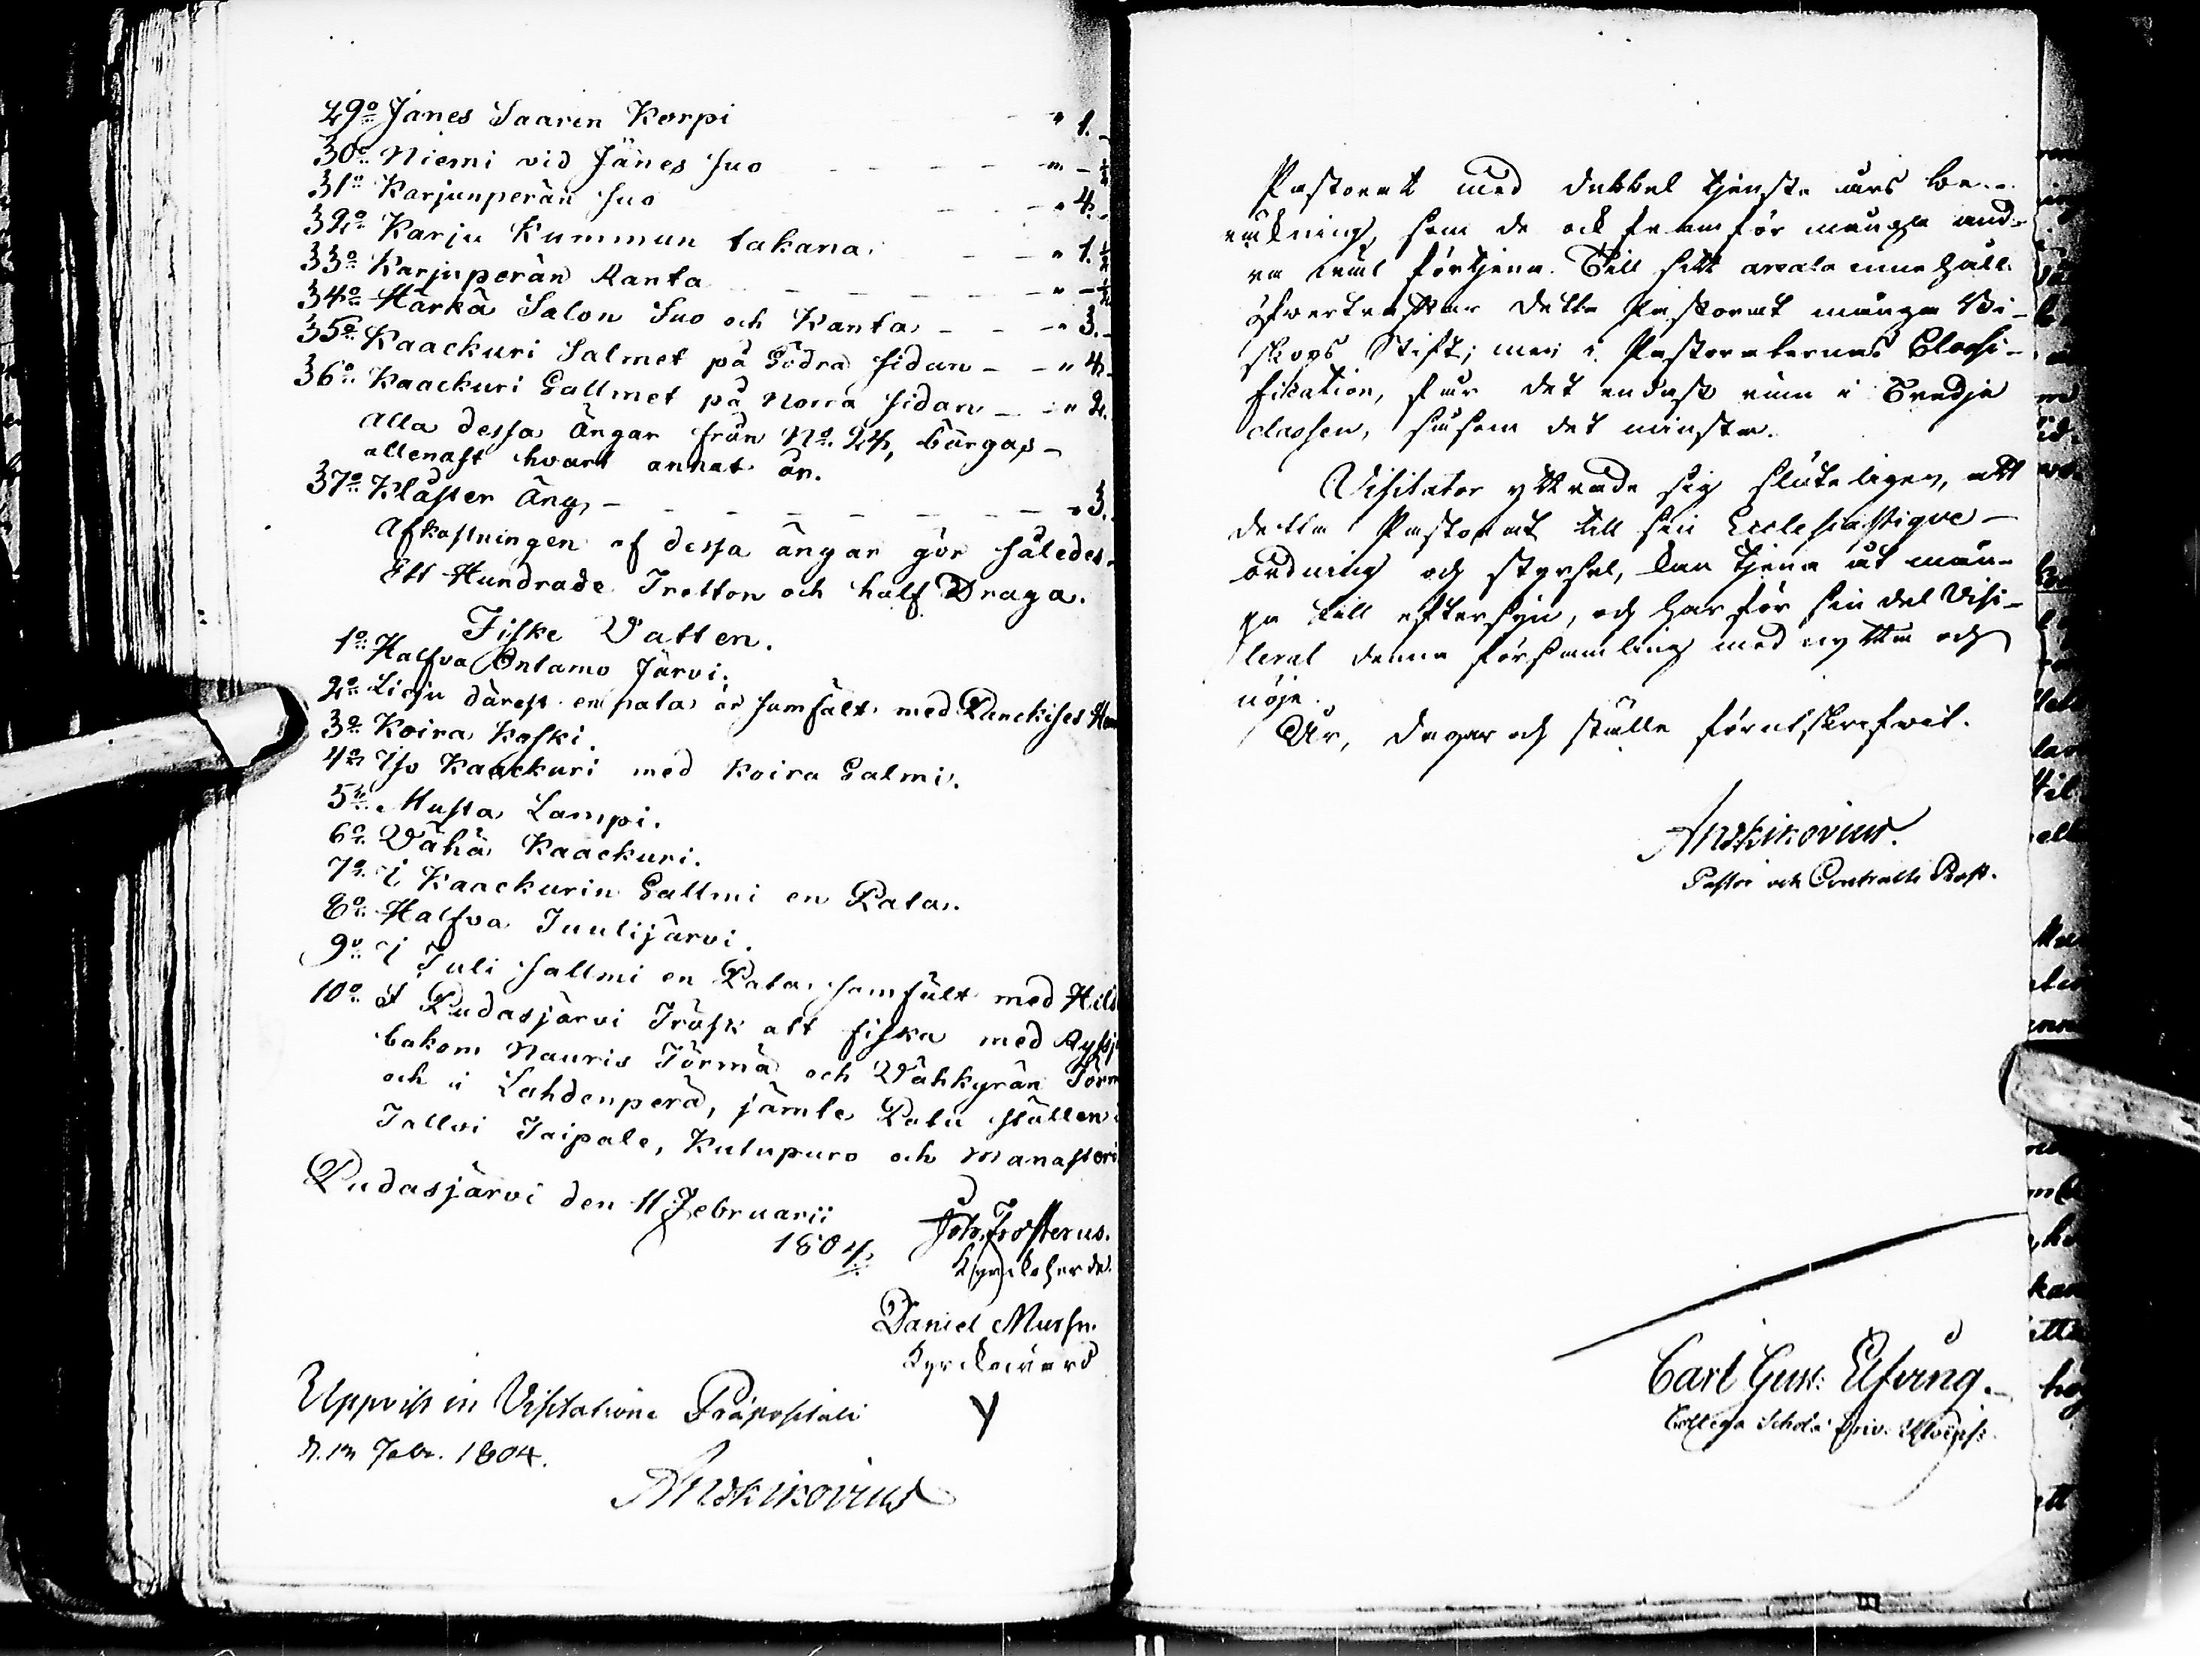 29o Jänes Saaren Korpi - - " 1. -
30o Niemi vid Jänes suo - - - - - " - ½
31o Karjunperän suo - - " 4. -
32o Karju Kummun takana - - " 1. ½
33o Karjuperän Ranta - - - - - " - ½
34o Härkä Salon Suo och Ranta - - - " 3. -
35o Kaackuri Salmet på Södra sidan - - " 4. -
36o Kaackuri Sallmet på Norra sidan - - " 2.
Alla dessa Ängar från No 24, bärgas
allenast hvart annat år.
37o Klåster Äng, - - - - - - - " 3.
Afkastningen af dessa ängar gör således
Ett Hundrade Tretton och half Draga.
Fiske Vatten.
1o Halfva Ontamo Järvi.
2o Liesu därest en pata är samfält med Panckises
3o Koira Koski.
4o Iso Kaackuri med Koira Salmi.
5o Musta Lampi.
6o Wähä Kaackuri.
7o I Kaackurin Sallmi en Pata.
8o Halfva Juulijärvi.
9o I Juli sallmi en Pata samfält med
10o I Pudasjärvi Träsk att fiska med
bakom Nauris Törmä och Wähkyrän
och i Lahdenperä, jämte Pata ställen
Tallvi Taipale, Kutupuro och
Pudasjärvi den 11 Februarii
1804.
Joh. Frosterus.
Kyrckoherde.
Daniel
Kyrckovärd
Uppvist in Visitatione Præpositali
d. 13 Febr. 1804.
Pastorat med dubbel tjenste års be-
räkning, som de ock framför många and-
ra wäl förtjena. Till sitt areala innehåll
öfverträffar detta pastorat många Bi-
skops Stift; men i Pastoraternas Classi-
fikation, står det endast rum i Tredje
classen, såsom det minsta.
Visitator yttrade sig sluteligen, att
detta Pastorat till sin Ecclesiastique
ordning och styrsel, kan tjena åt mån-
ga till eftersyn, och har för sin del Visi-
terat denna församling med nytta och
nöje.
År, dagar och ställe förutskrefvit.
Pastor och Contracts Prost.
Carl Gust: Elfving.
Collega Schol: